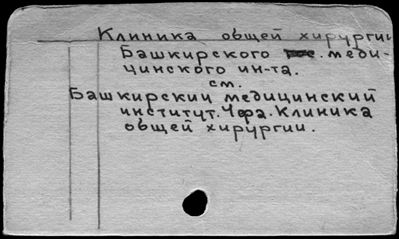 Клиника общей хирургии
Башкирского меди-
цинского ин-та.
см.
Башкирский медицинский
институт. Уфа. Клиника
общей хирургии.